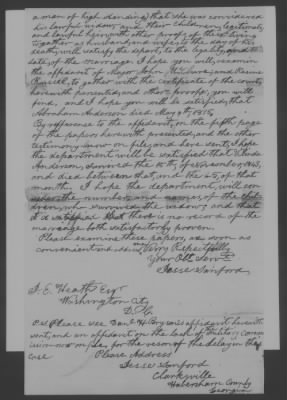 a man of high standing, that she was considered
his lawful widow, and their children, legitimate,
and lawful heirs, with other proof, of their living
together as husband, and wife, to the day of his
death, will satisfy the depart, to the legality,
date, of the marriage. I hope you will, reexamine
the affidavit, of Major John McClure, and Revin
Russell, to gather with the certificate of the courts,
herewith presented, and other proof, you will
find, and I hope you will be satisfied, that
Abraham Anderson died May 9th 1815,
By reference to the affidavit, on the fifth page
of the papers herewith presented, and the other
testimony now on file, and here sent, I hope
the department will be satisfied that Rhoda
Anderson, survived the 4th, of November 1845,
and died between that, and the 25, of that
month. I hope the department, will con-
sider the number, and names of the chil-
dren, who survived the widow, and that
it is satisfied that there is no record of the
marriage both satisfactorily proven.
Please examine these papers, as soon as
convenient and obli Very Respectfully
Your Obt. Servt.
Jesse Sanford
J. E. Heath Esqr
Washington City
D. C.
P.S. Please see Danl. H. Bryson's affidavit herewith
sent, and an affidavit on the lack of
is now on file, for the reason of the delay in the
case Please Address
Jesse Sanford
Clarksville
Habersham County
Georgia